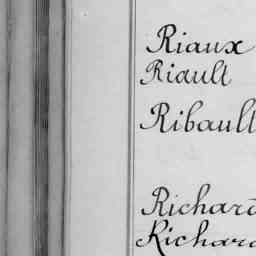 Riaux
Riault
Ribault
Richard
Richard